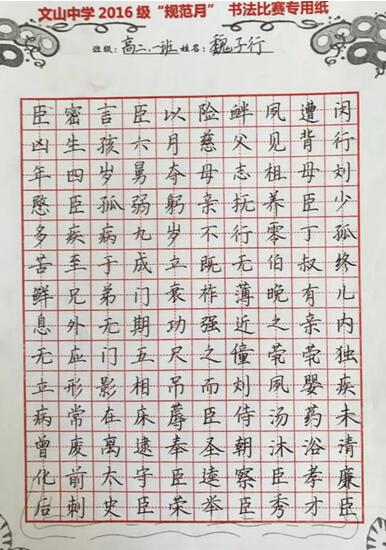 文山中学2016级“规范月”书法比赛专用纸
班级:高二.一班 姓名:魏子行
臣密言臣以险衅夙遭闵
凶生孩六月慈父见背行
年四岁舅夺母志祖母刘
愍臣孤弱躬亲抚养臣少
多疾病九岁不行零丁孤
苦至于成立既无伯叔终
鲜兄弟门衰祚薄晚有儿
息外无期功强近之亲内
无应门五尺之僮茕茕独
立形影相吊而刘夙婴疾
病常在床蓐臣侍汤药未
曾废离逮奉圣朝沐浴清
化前太守臣逵察臣孝廉
后刺史臣荣举臣秀才臣